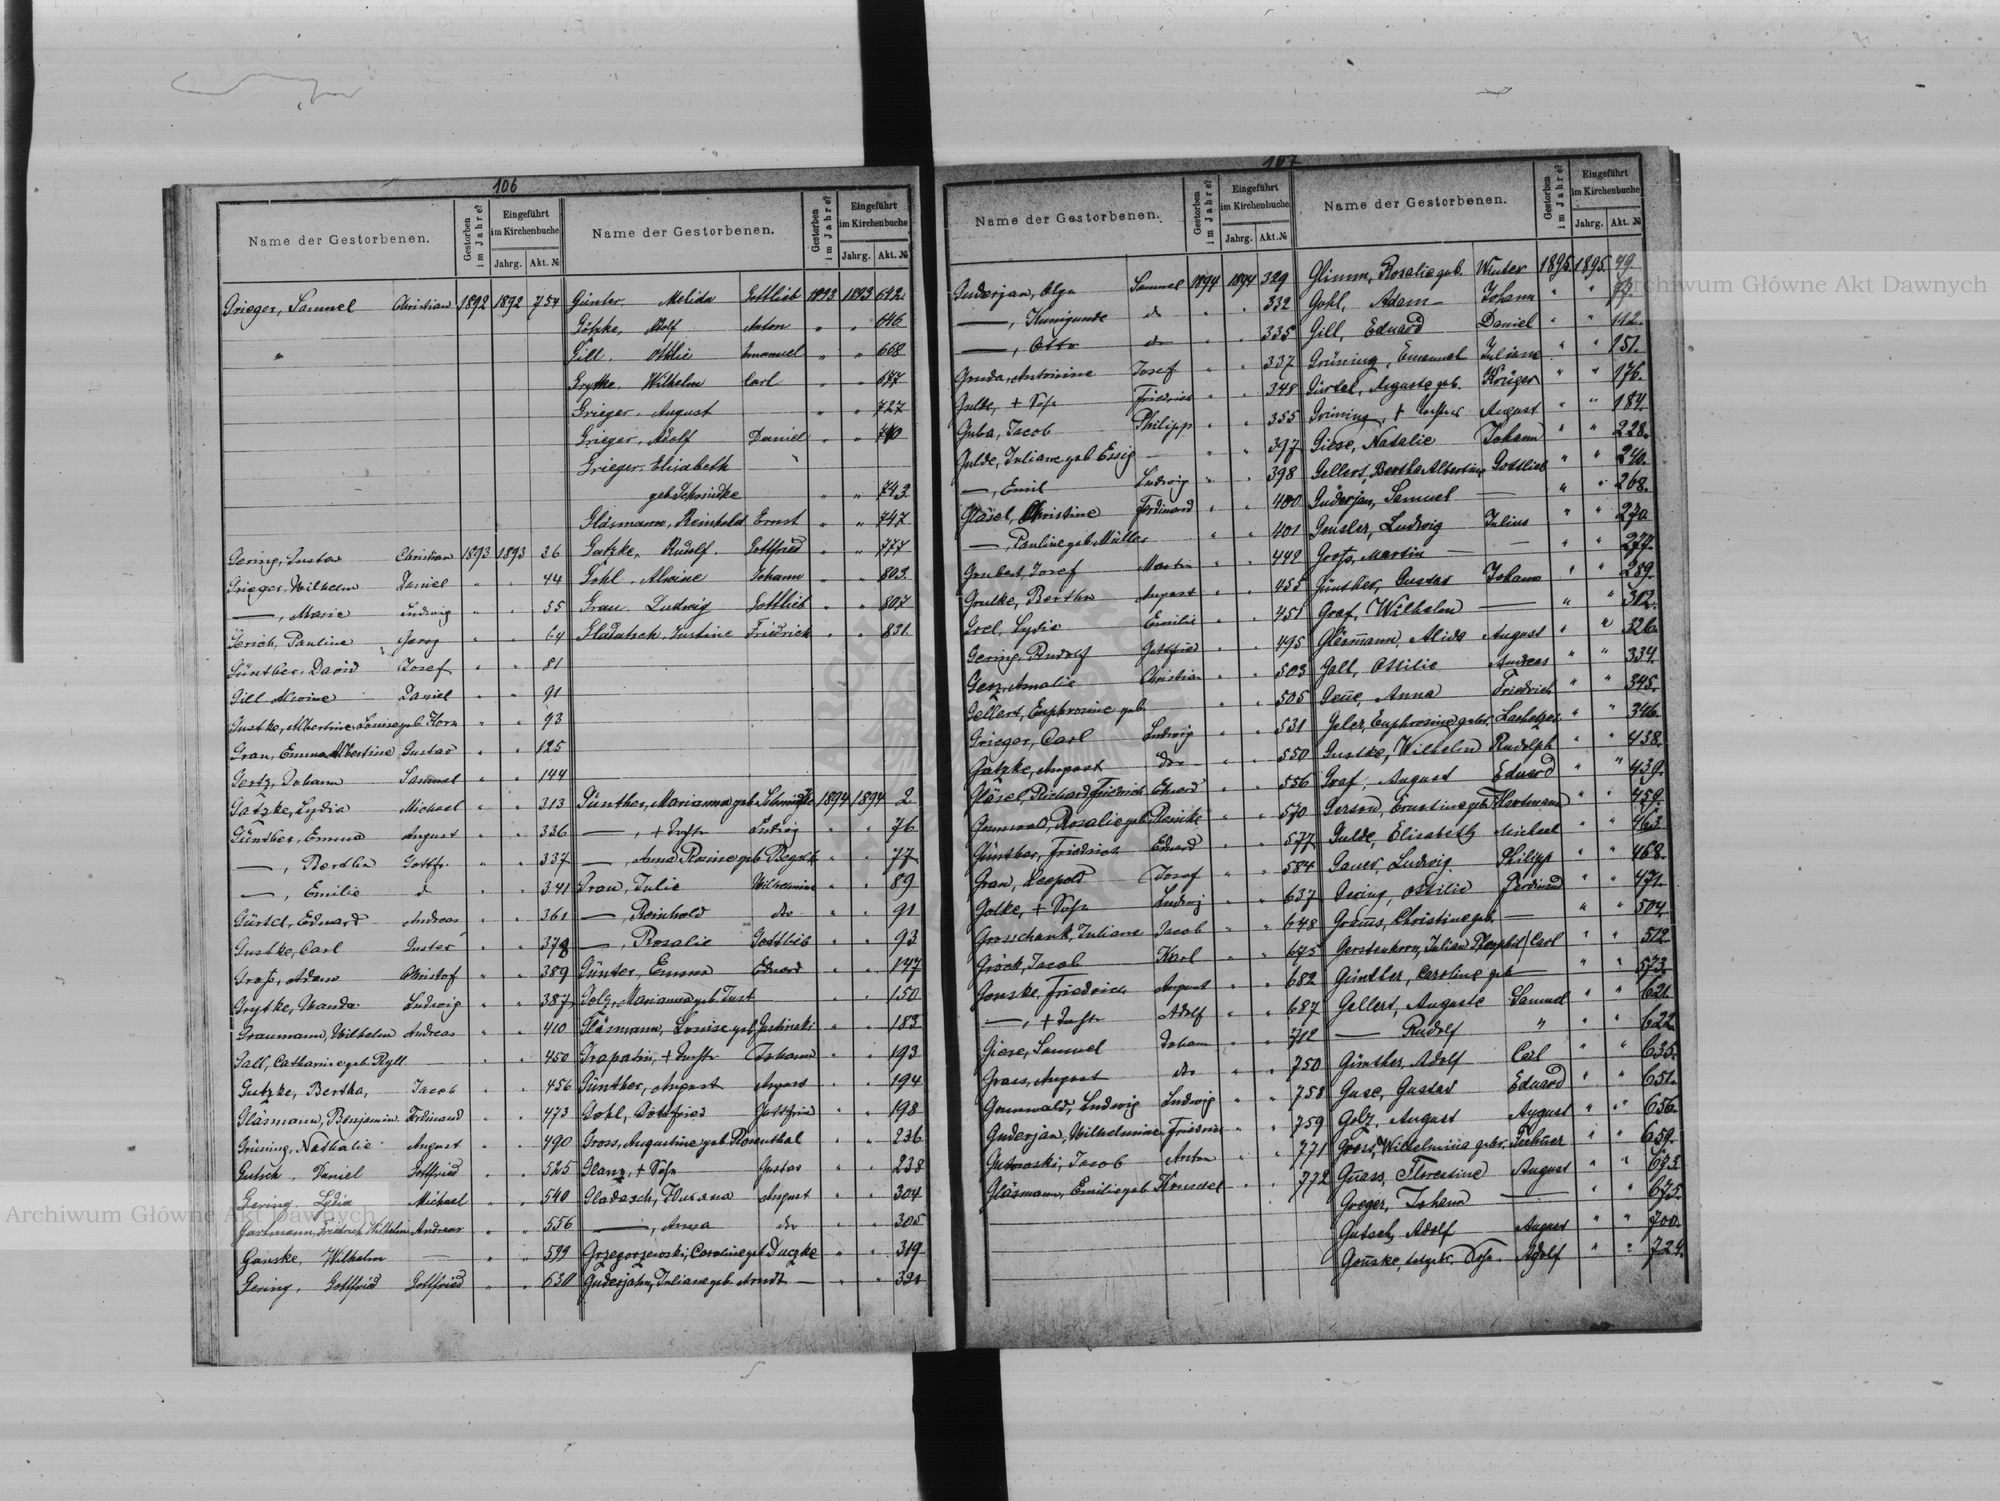 106
Name der Gestorbenen.
Gestorben im Jahre?
Eingeführt im Kirchenbuche
Jahrg. Akt. №
Grieger, Samuel Christian 1892 1892 754
Gering, Gustav Christian 1893 1893 26
Grieger, Wilhelm Daniel " " 44
—, Marie Ludwig " " 55
Gerich, Pauline Georg " " 64
Günther, David Josef " " 81
Gill Alwine Daniel " " 91
Gustke, Albertine Louise geb. Horn " " 93
Grau, Emma Albertine Gustav " " 125
Gertz, Johann Samuel " " 144
Gatzke, Lydia Michael " " 313
Günther, Emma August " " 336
—, Bertha Gottfr. " " 337
—, Emilie d " " 341
Gürtel, Eduard Andreas " " 361
Gustke, Carl Gustav " " 378
Groß, Adam Christof " " 389
Grytke, Wanda Ludwig " " 387
Graumann, Wilhelm Andreas " " 410
Gall, Catharine geb. Ryll " " 450
Gutzke, Bertha, Jacob " " 456
Gläsmann, Benjamin Ferdinand " " 473
Grüning, Nathalie August " " 490
Gutsch, Daniel Gottfried " " 525
Gering, Lydia Michael " " 540
Friedrich Wilhelm Andreas " " 556
Ganske, Wilhelm — " " 599
Gering, Gottfried Gottfried " " 630
Name der Gestorbenen.
Gestorben im Jahre?
Eingeführt im Kirchenbuche
Jahrg. Akt. №
Günter, Melida Gottlieb 1893 1893 642.
Götzke, Adolf Anton " " 646
Gill, Ottilie Emanuel " " 668
Grytke, Wilhelm Carl " " 677
Grieger, August " " 727
Grieger, Adolf Daniel " " 740
Grieger, Elisabeth
geb. Schmidke " " 743.
Gläsmann, Reinhold Ernst " " 747
Gatzke, Rudolf. Gottfried " " 777
Gohl, Alwine Johann " " 803.
Grau, Ludwig Gottlieb " " 807
Gladatsch, Justine Friedrich " " 831
Günther, Marianna geb. Schmidtke 1894 1894 2
—, + Ludwig " " 76
—, Anna Rosine geb. " " 77
Grau, Julie Wilhelmine " " 89
— Reinhold do " " 91
—, Rosalie Gottlieb " " 93
Günter, Emma Eduard " " 147
Golz, Marianna geb. Just " " 150
Gläsmann, Louise geb. Justinski " " 183
+ Johann " " 193
Günther, August August " " 194
Gohl, Gottfried Gottfried " " 198
Gross, Augustine geb. Rosenthal " " 236
Glanz, + Sohn Gustav " " 238
Gladasch, Susana August " " 304
—, Anna do " " 305
Grzegorzewski, Caroline geb. Duczke " " 319
Guderjahn, Juliane geb. Arndt — " " 321
107
Name der Gestorbenen.
Gestorben im Jahre?
Eingeführt im Kirchenbuche
Jahrg. Akt. №
Guderjan, Olga Samuel 1894 1894 329
—, Kunigunde do " " 332
—, Otto do " " 335
Gruda, Antonine Josef " " 337
Gulde, + Sohn Friedrich " " 348
Guba, Jacob Philipp " " 355
Gulde, Juliane geb. Essig — " " 397
—, Emil Ludwig " " 398
Gläsel, Christine Ferdinand " " 400
—, Pauline geb. Müller " " 401
Grubert, Josef Martin " " 442
Grulke, Bertha August " " 455
Grel, Lydia Emilie " " 451
Gering, Rudolf Gottfried " " 495
Amalie Christian " " 503
Gellert, Euphrosine geb. " " 505
Grieger, Carl Ludwig " " 531
Gatzke, August do " " 550
Gläsel, Richard Friedrich Eduard " " 556
Grunwald, Rosalie geb. " " 570
Günther, Friedrich Eduard " " 577
Grau, Leopold Josef " " 584
Golke, + Sohn Ludwig " " 637
Grosschank, Juliane Jacob " " 648
Gröck, Jacob Karl " " 675
Gonske, Friedrich August " " 682
—, + Adolf " " 687
Giese, Samuel Johann " " 712
August do " " 750
Grunwald, Ludwig Ludwig " " 758
Guderjan, Wilhelmine Friedrich " " 759
Gutowski, Jacob Anton " " 771
Gläsmann, Emilie geb. " " 772
Name der Gestorbenen.
Gestorben im Jahre?
Eingeführt im Kirchenbuche
Jahrg. Akt. №
Glimm, Rosalie geb. Winter 1895. 1895. 49.
Gohl, Adam Johann " "
Gill, Eduard Daniel " " 112.
Grüning, Emanuel Juliane " " 151.
Gürtel, Auguste geb. Krüger " " 176.
Grüning, + August " " 184.
Giese, Natalie Johann " " 228.
Gellert, Bertha Albertine Gottlieb " " 240.
Guderjan, Samuel — " " 268.
Gensler, Ludwig Julius " " 270
Groß, Martin — — " " 277.
Günther, Gustav Johann " " 289.
Graf, Wilhelm — " " 312.
Gläsmann, Alida August " " 326.
Gall, Ottilie Andreas " " 334.
Anna Friedrich " " 345.
Geler, Euphrosine geb. " " 346.
Gustke, Wilhelm Rudolph " " 438.
Graf, August Eduard " " 439.
Gerson, Ernstine geb. Hartmann " " 459.
Gulde, Elisabeth Michael " " 463
Gauer, Ludwig Philipp " " 468.
Gering, Ottilie Ferdinand " " 471.
Christine geb. — " " 504.
Gerstenkorn, Julian Theophil / Carl " " 512
Günther, Caroline geb. — " " 573.
Gellert, Auguste Samuel " " 621.
— Rudolf " " " 622
Günther, Adolf Carl " " 635.
Guse, Gustav Eduard " " 651.
Golz, August August " " 656.
Gross, Wilhelmina geb. " " 659.
Florentine August " " 673
Greger, Johann — " " 675.
Gutsch, Adolf August " " 700.
Sohn. Adolf " " 724.
Archiwum Główne Akt Dawnych
Archiwum Główne Akt Dawnych